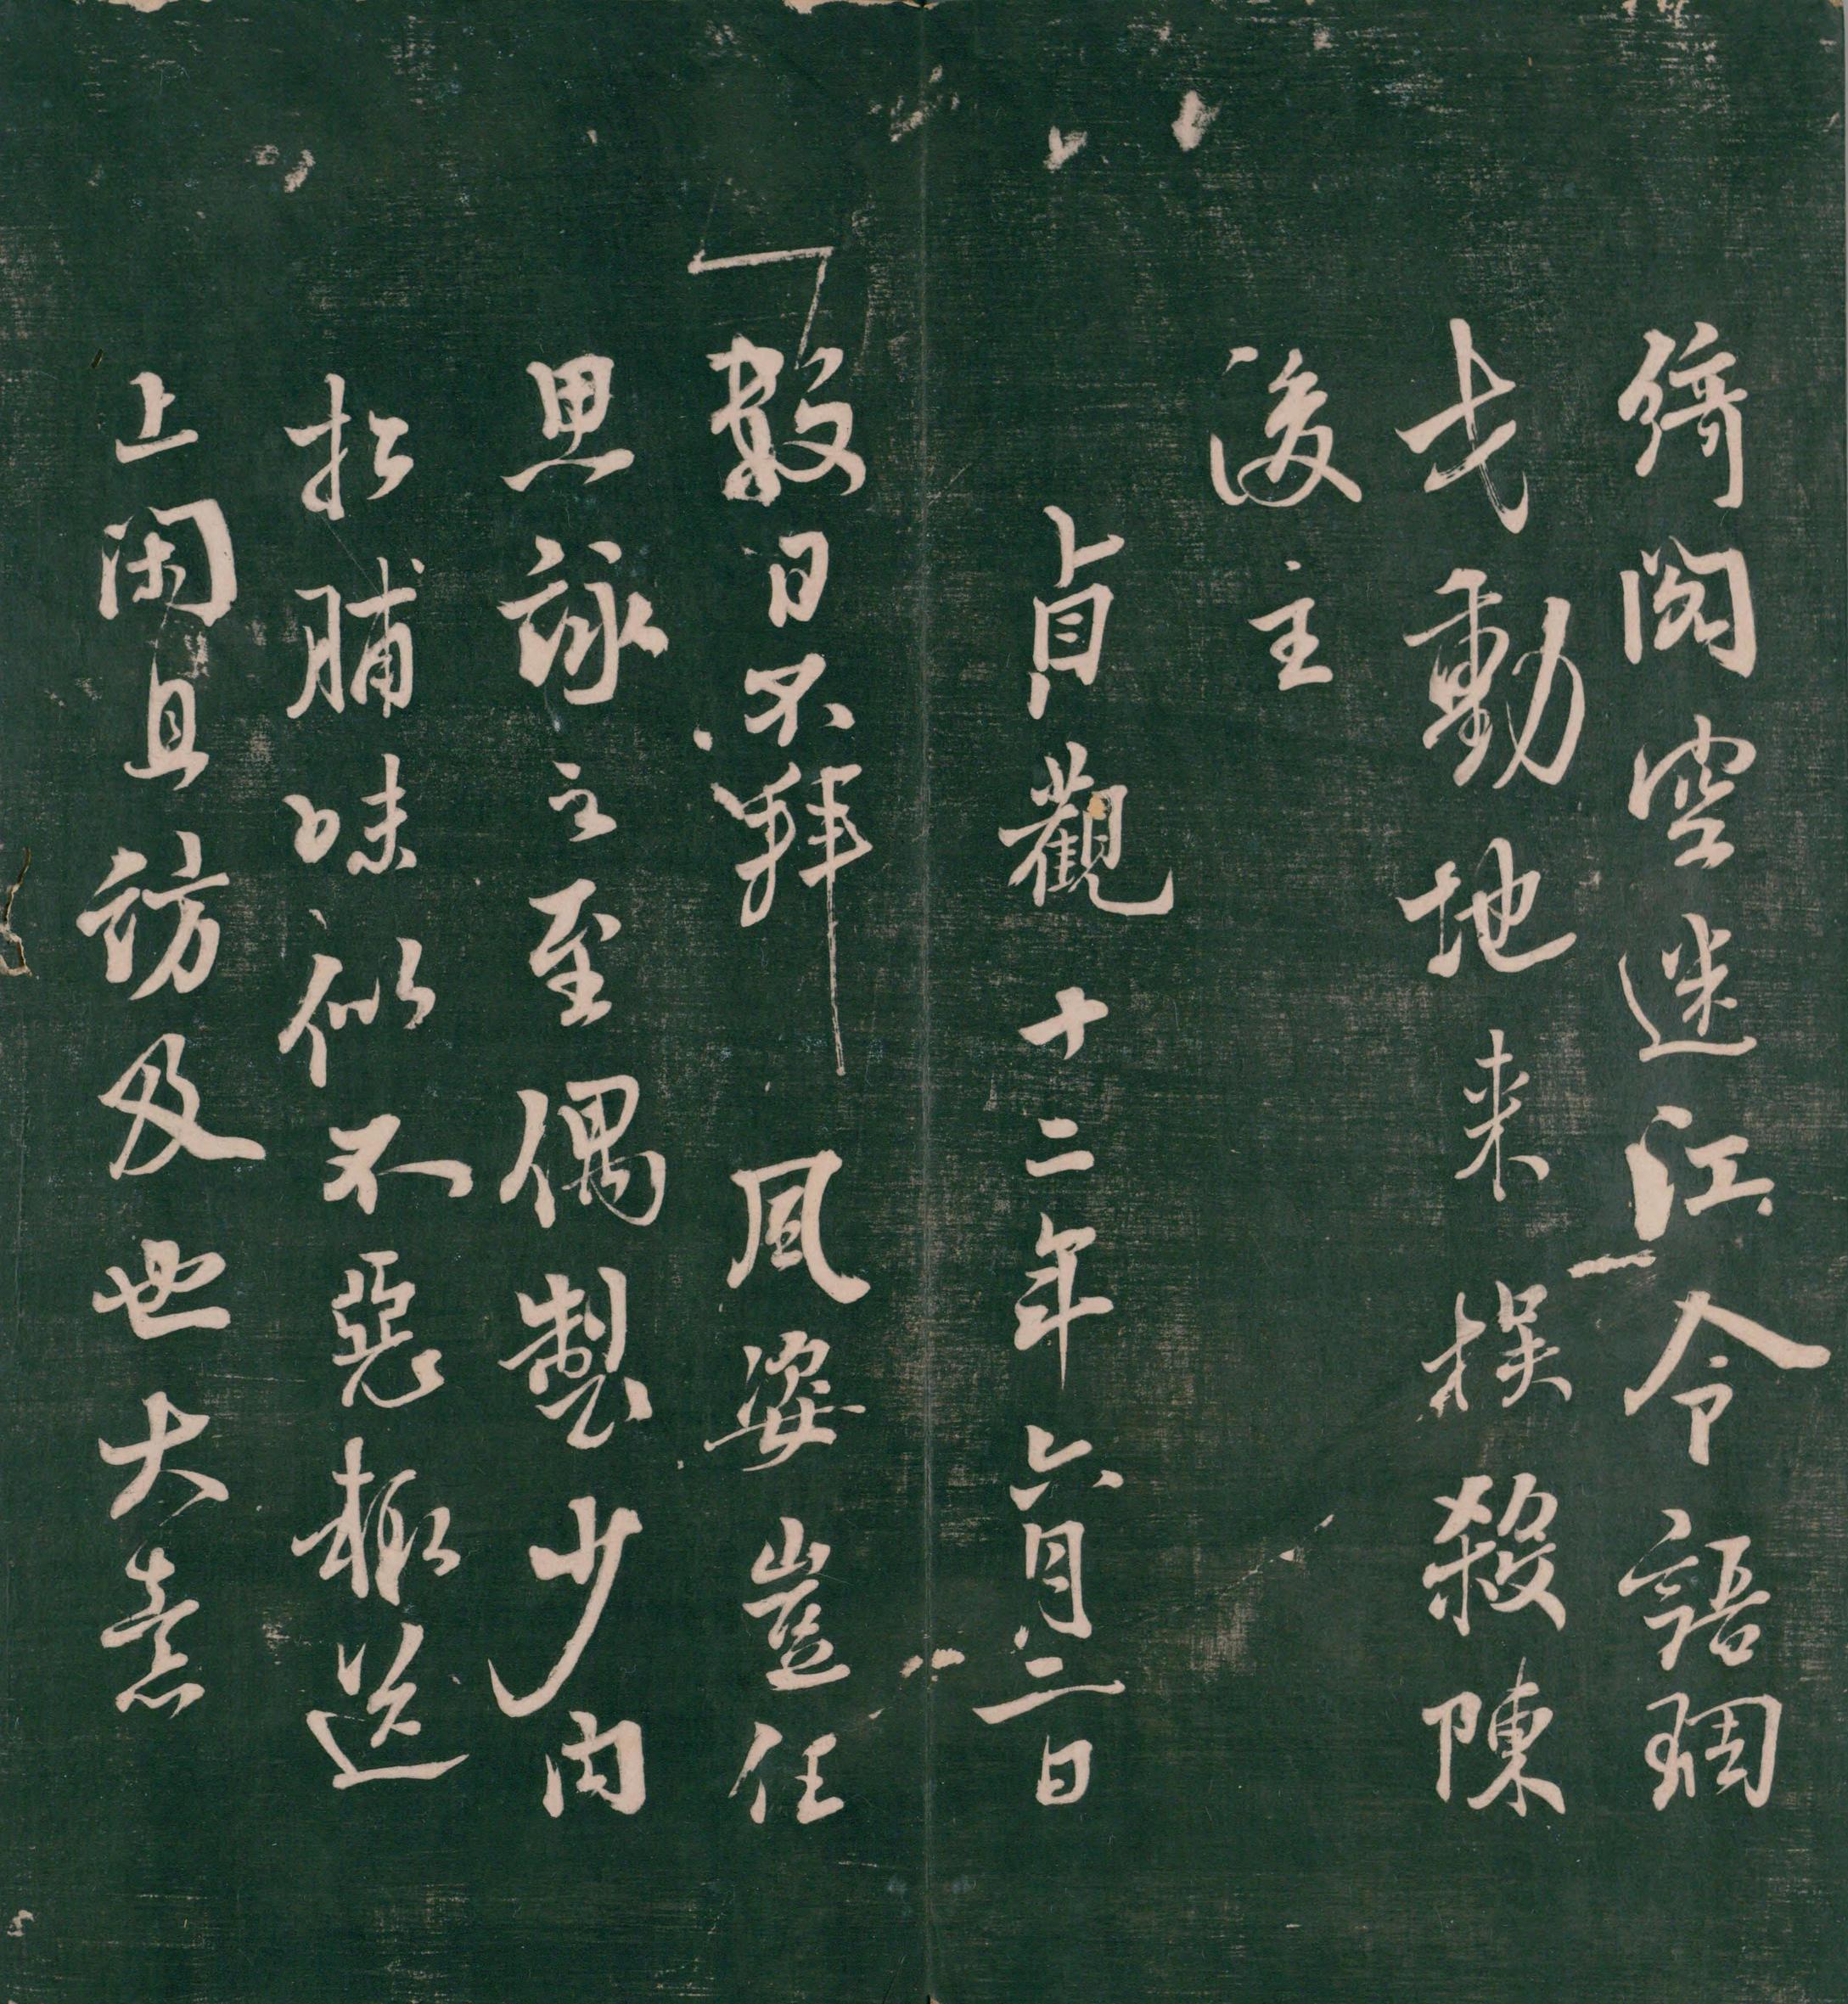 綺閣空迷江令語琱
戈動地来悮殺陳
後主
貞觀十二年六月二日
數日不拜風姿豈任
思詠之至偶製少肉
松脯味似不惡輙送
上閑且訪及也大